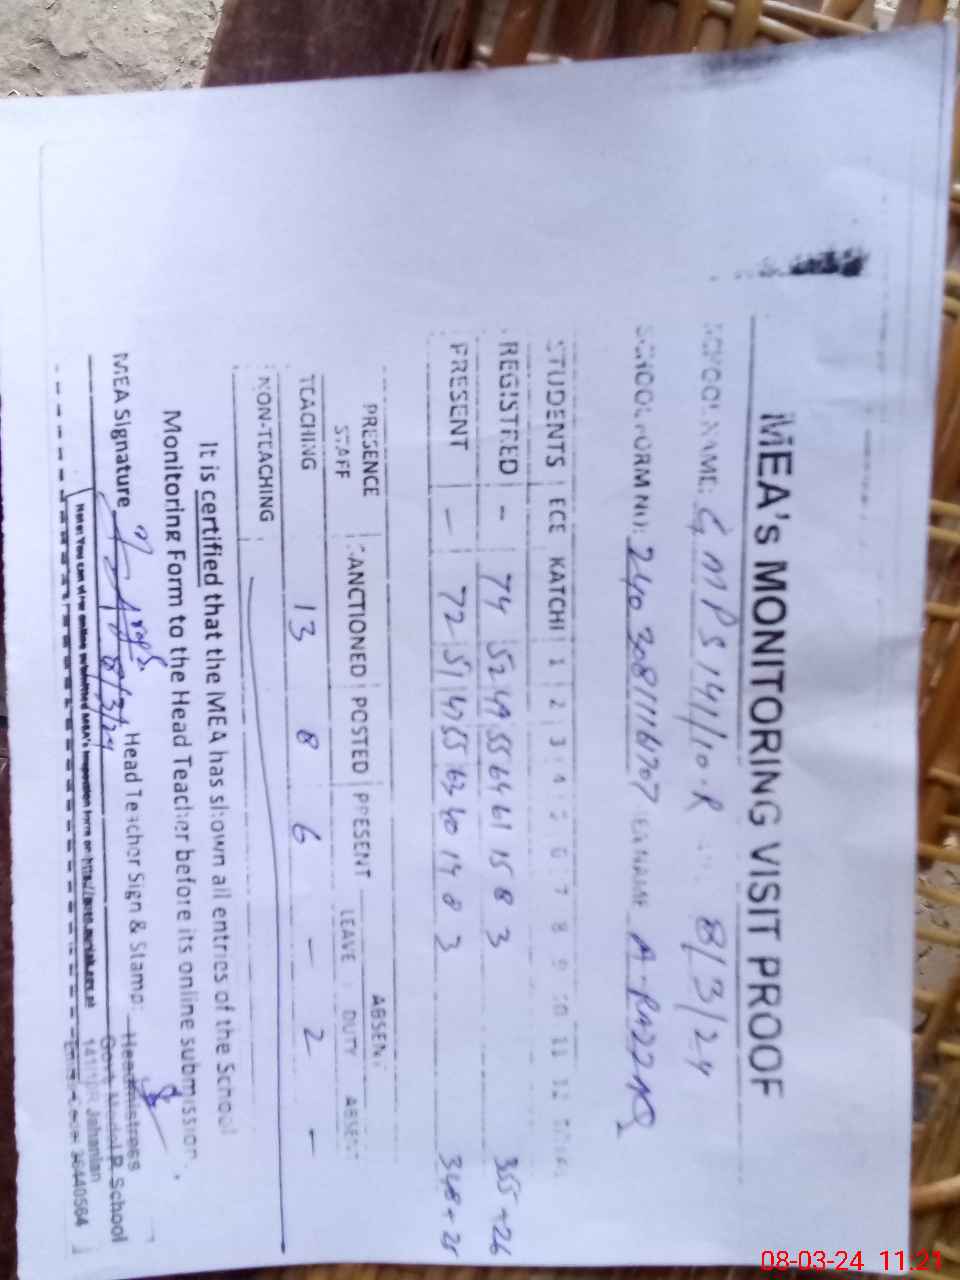 MEA's MONITORING VISIT PROOF
SCHOOL NAME: GMPS 141/10-R 8/3/24
SCHOOL FORM NO: NAME A-RAZZAQ
STUDENTS ECE KATCHI 1 2 3 4 5 6 7 8 9 10 11 12
REGISTRED - 74 52 49 55 64 61 15 8 3 355+26
PRESENT - 72 51 47 55 63 60 14 8 3 348+25
PRESENCE ABSENT
STAFF SANCTIONED POSTED PRESENT LEAVE DUTY ABSENT
TEACHING 13 8 6 - 2 -
NON-TEACHING
It is certified that the MEA has shown all entries of the School
Monitoring Form to the Head Teacher before its online submission.
MEA Signature 8/3/24 Head Teacher Sign & Stamp:
Headmistress
Govt. Model P. School
Jahanian
Note: You can view online submitted MEA's Inspection Form on
36440564
08-03-24 11:21